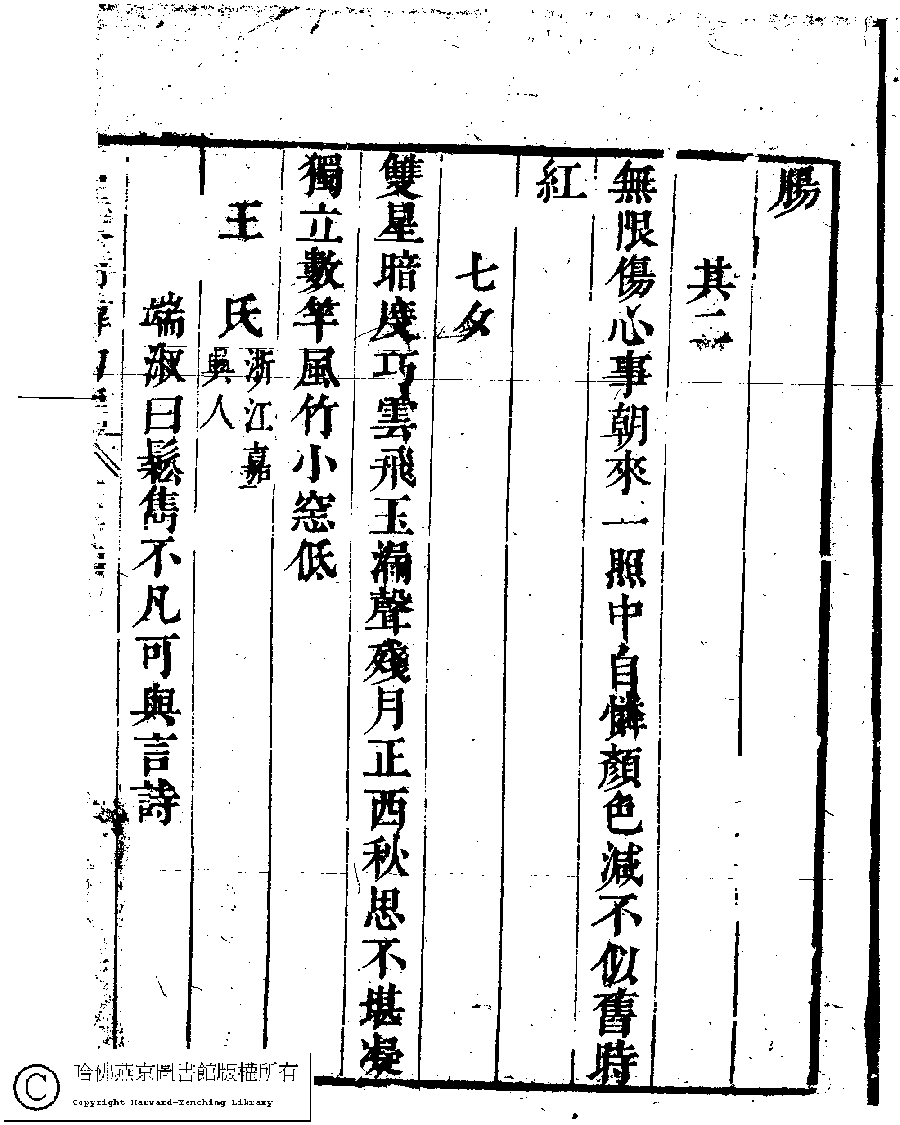 腸
其二
無限傷心事朝來一照中自憐顏色減不似舊時
紅
七夕
雙星暗度巧雲飛玉漏聲殘月正西秋思不堪凝
獨立數竿風竹小窓低
王氏浙江嘉興人
端淑曰鬆雋不凡可與言詩
哈佛燕京圖書館版權所有
Copyright Harvard-Yenching Library